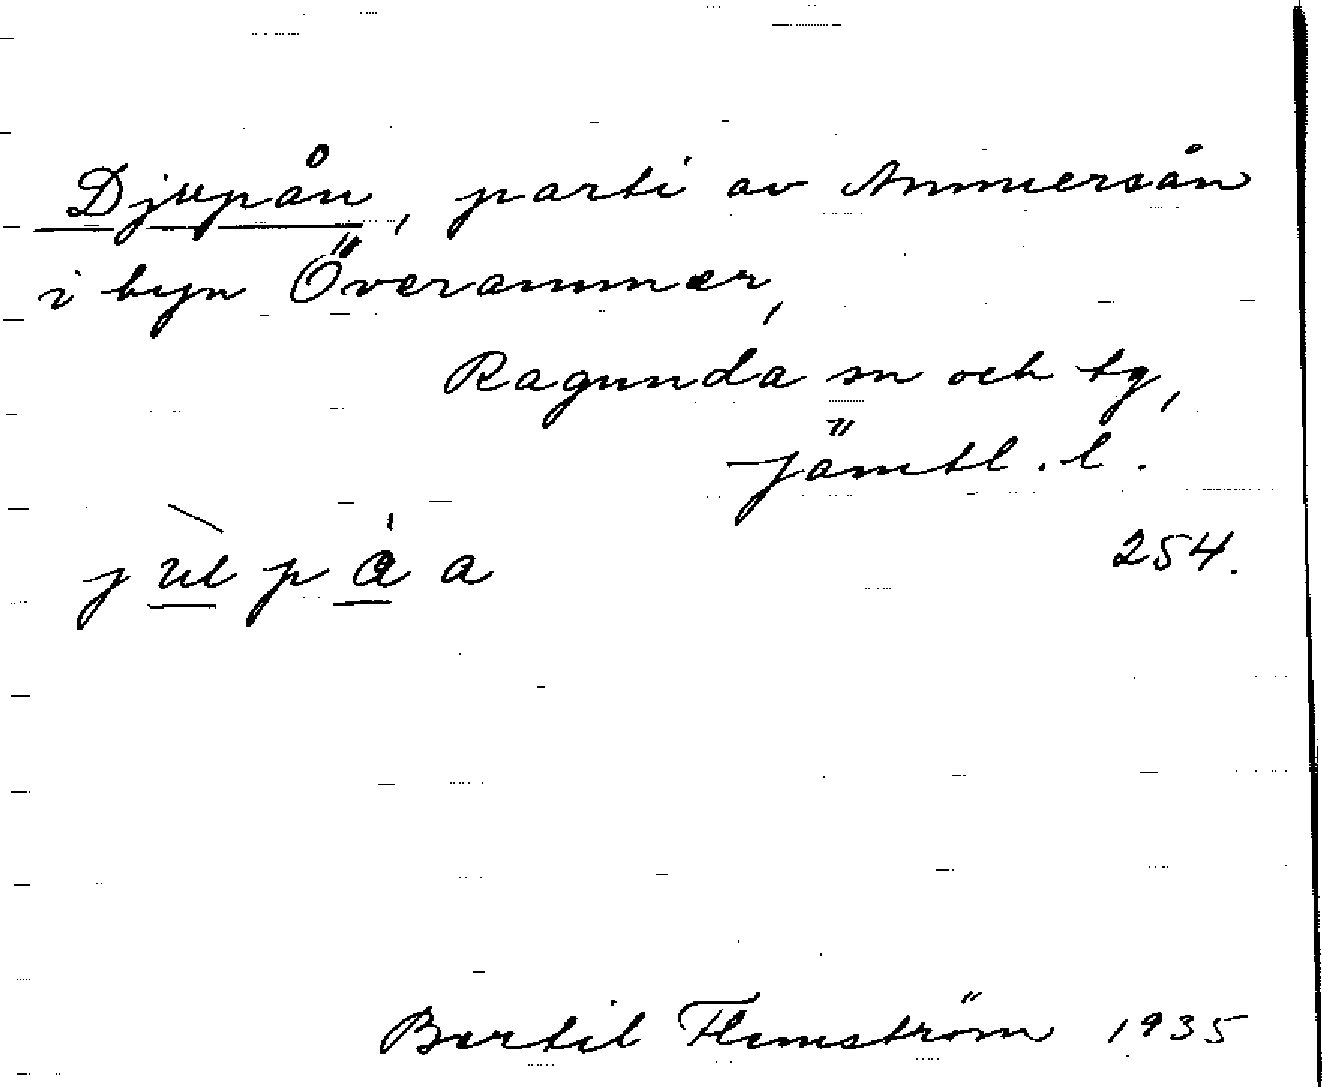 Djupån, parti av Ammersån
i byn Överammer,
Ragunda sn och tg,
Jämtl. l.
254.
Bertil Flemström 1935